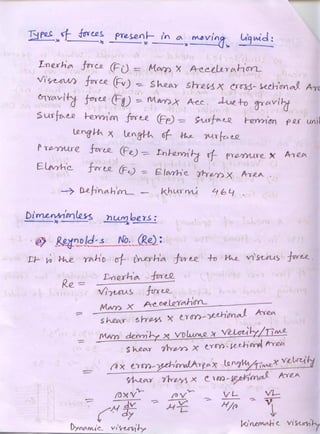 Types of forces present in a moving Liquid:
Inertia force (Fi) = Mass X Acceleration
Viscous force (Fv) = Shear Stress X cross-sectional Are
Gravity force (Fg) = Mass X Acc. due to gravity
Surface tension force (Fp) = Surface tension per uni
length X length of the surface
Pressure force (Fe) = Intensity of pressure X Area
Elastic force (Fs) = Elastic stress X Area.
→ Defination — khurmi 464.
Dimensionless numbers:
a) Reynold's No. (Re):
It is the ratio of inertia force to the viscous force.
Re = Inertia force / Viscous force
= Mass X Acceleration / Shear stress X cross-sectional Area
= Mass density X volume X Velocity/Time / Shear stress X cross-sectional Area
= ρ x cross-sectional Area x length/Time x velocity / Shear stress X cross-sectional Area
= ρ x V² / μ dv/dy = ρV² / μ V/L = VL / μ/ρ = VL / ν
Dynamic viscosity kinematic viscosity